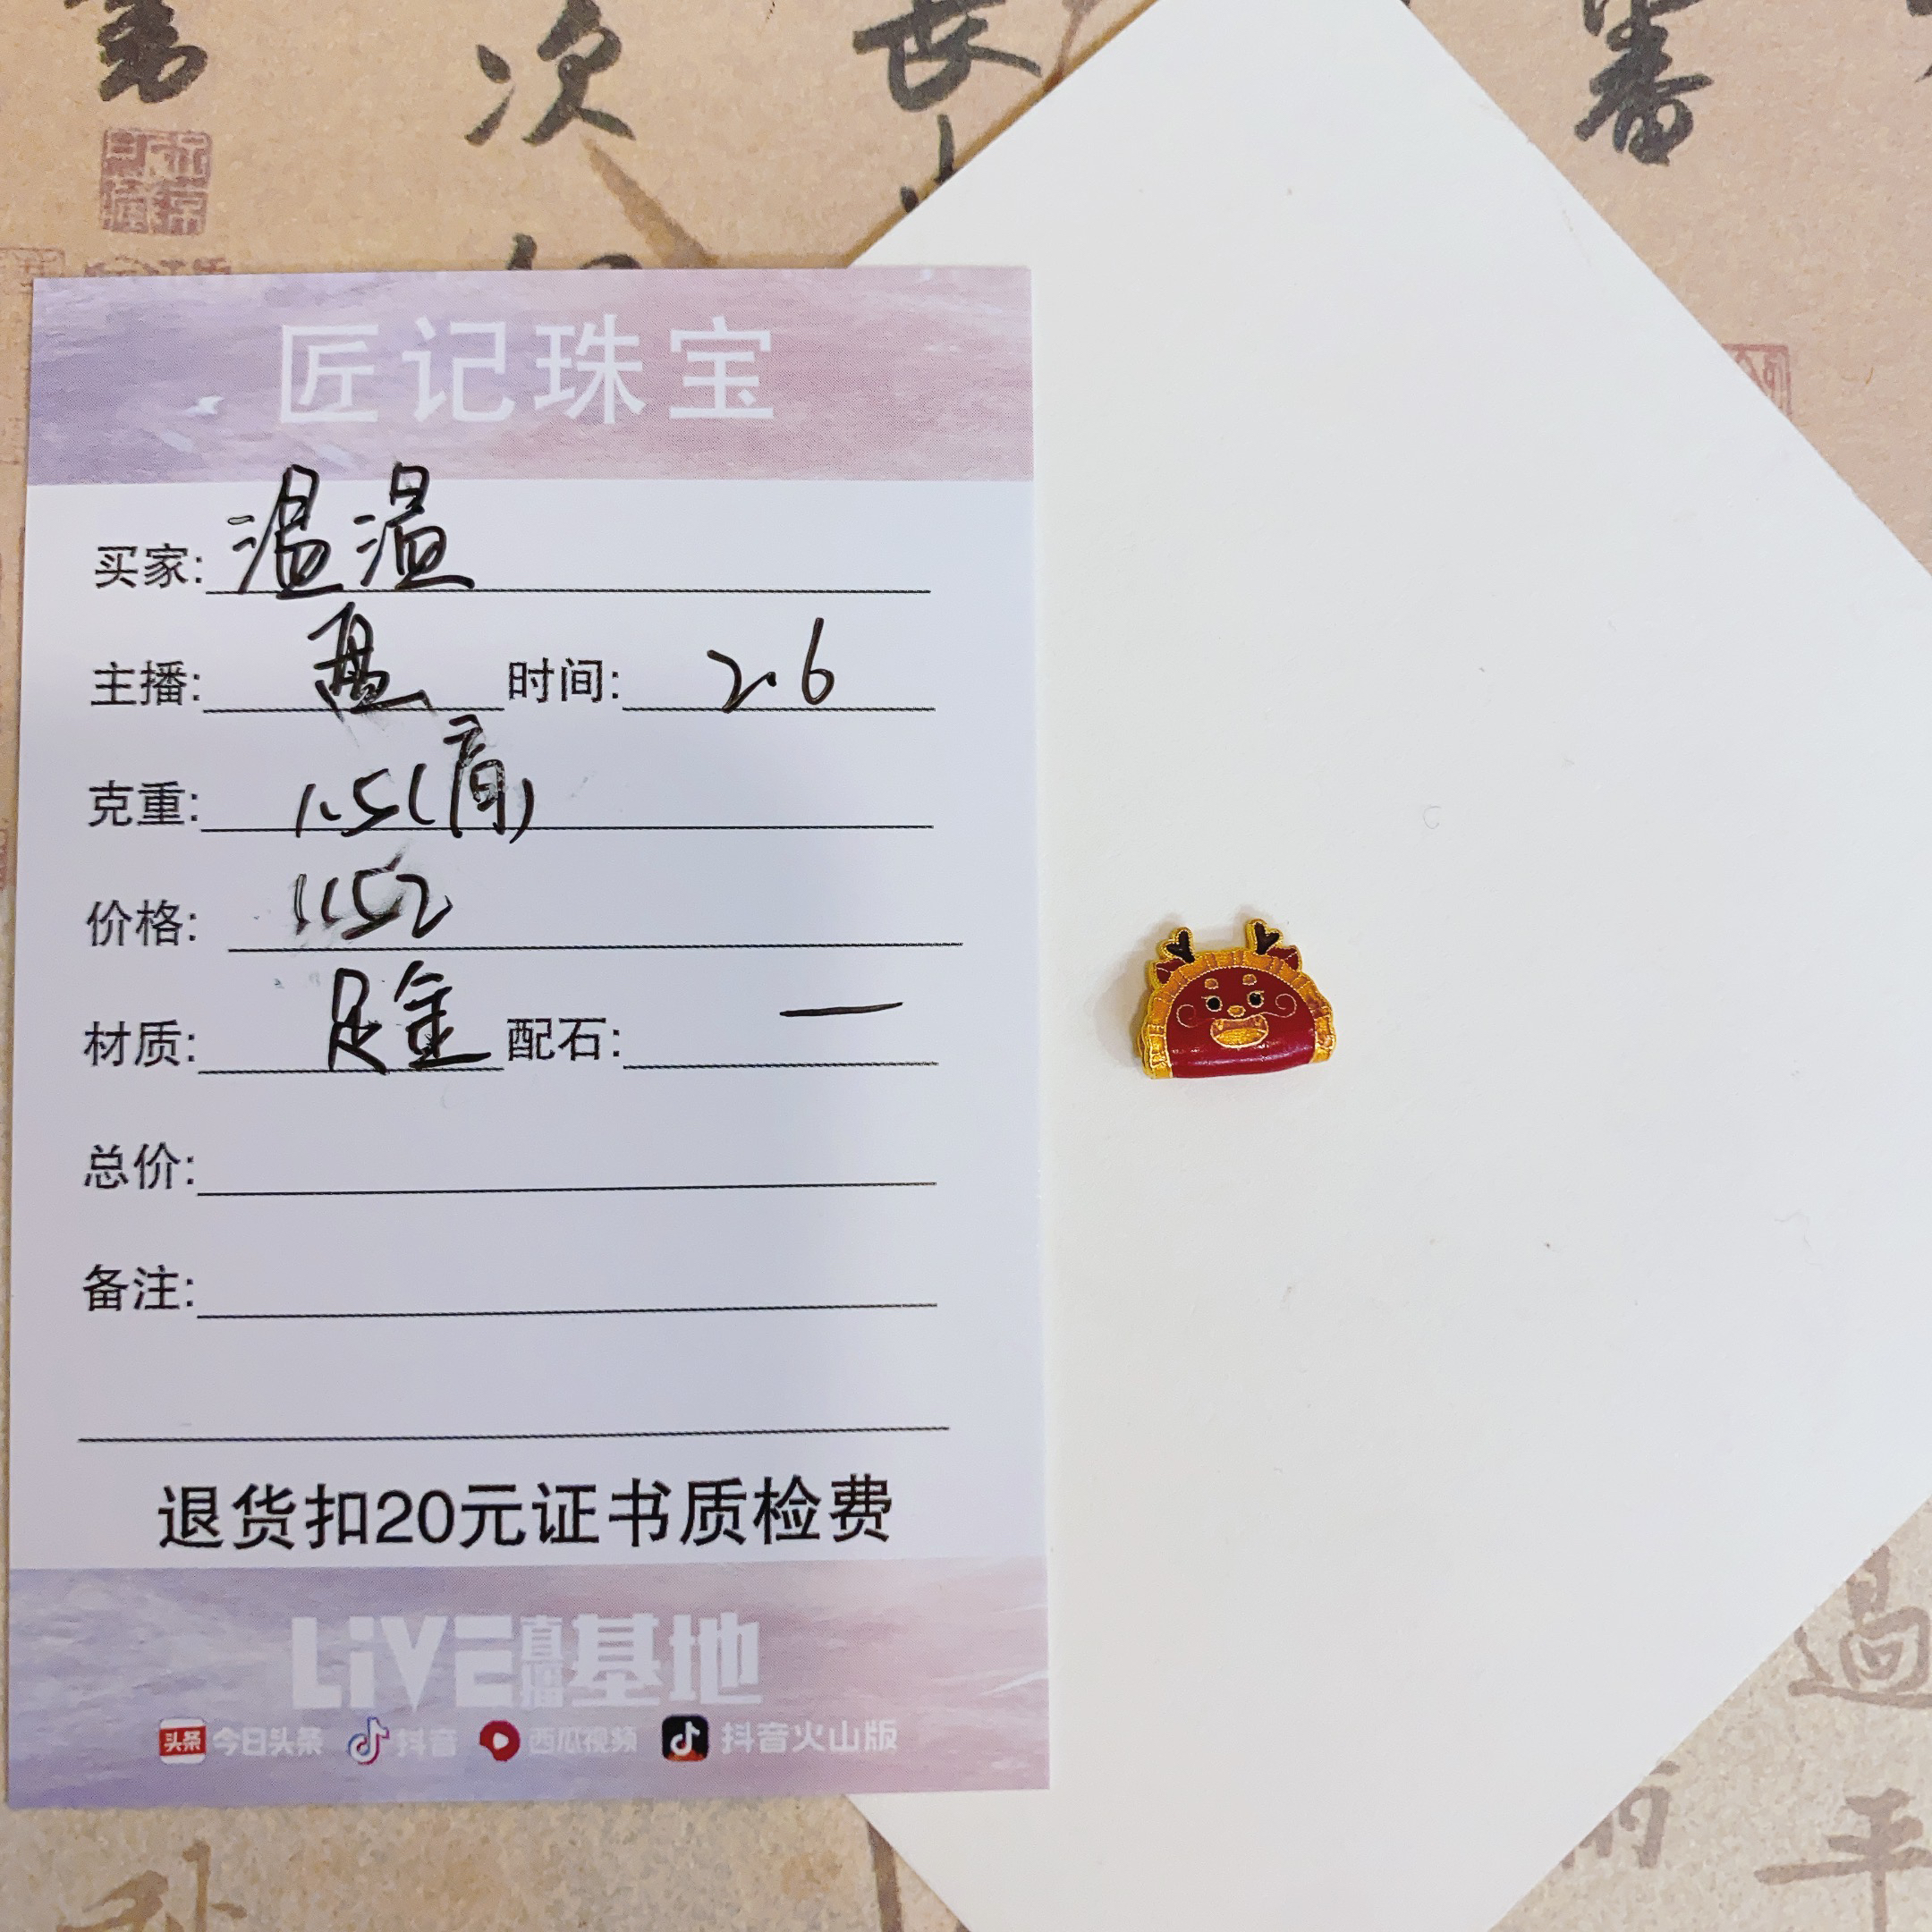 次
長
番
匠记珠宝
买家: 温温
主播: 时间: 2.6
克重: 1.5()
价格: 1152
材质: 足金 配石: 一
总价:
备注:
退货扣20元证书质检费
LiVE直播基地
头条 今日头条 抖音 西瓜视频 抖音火山版
過
平